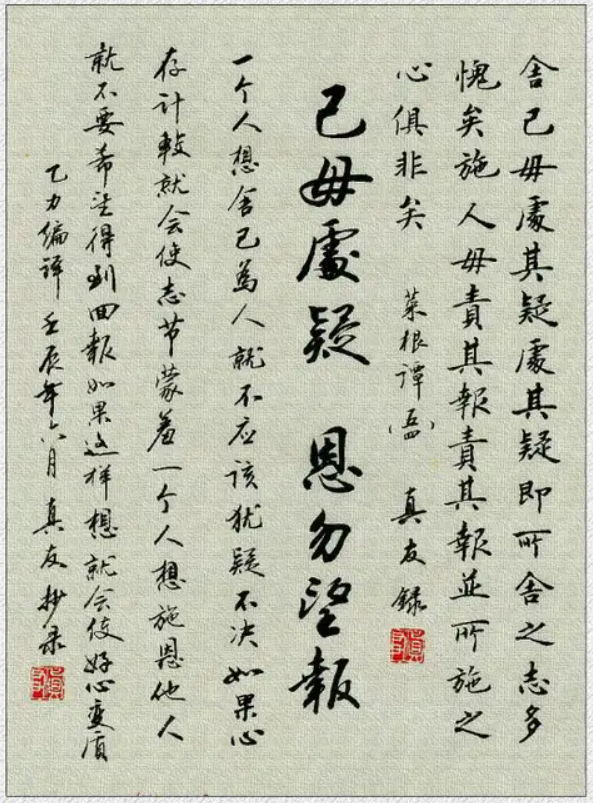 舍己毋處其疑處其疑即所舍之志多
愧矣施人毋責其報責其報並所施之
心俱非矣 菜根譚(五四) 真友錄
己毋處疑 恩勿望報
一个人想舍己為人就不应该犹疑不决如果心
存计較就会使志节蒙羞一个人想施恩他人
就不要希望得到回報如果这样想就会使好心变质
乙力编译壬辰年六月真友抄录